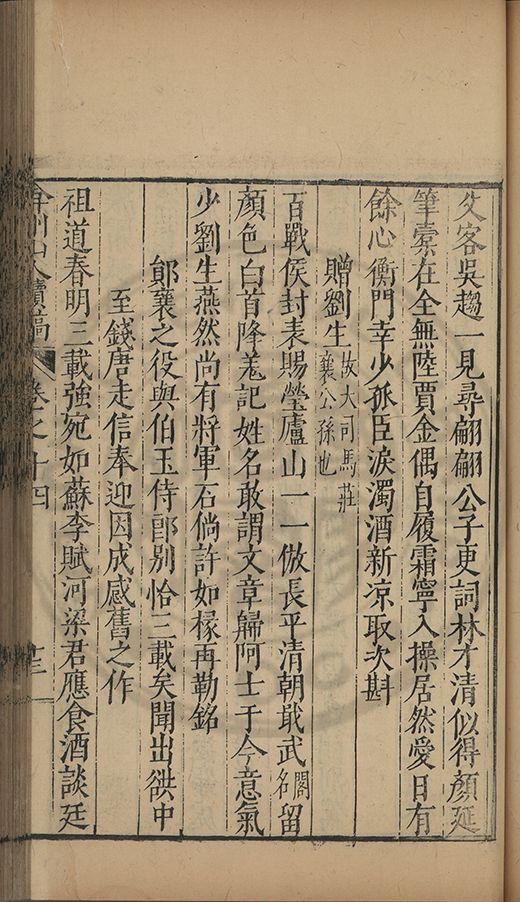 久客吳趨一見尋翩翩公子更詞林才清似得顏延
筆橐在全無陸賈金偶自履霜寧入操居然愛日有
餘心衡門幸少孤臣淚濁酒新凉取次斟
贈劉生故大司馬莊
襄公孫也
百戰侯封表賜塋廬山一一倣長平清朝戢武名閣留
顏色白首降羗記姓名敢謂文章歸阿士于今意氣
少劉生燕然尚有將軍石倘許如椽再勒銘
鄖襄之役與伯玉侍郎別恰三載矣聞出谼中
至錢唐走信奉迎因成感舊之作
祖道春明三載強宛如蘇李賦河梁君應食酒談廷
弇州山人續稿 卷之十四 十三